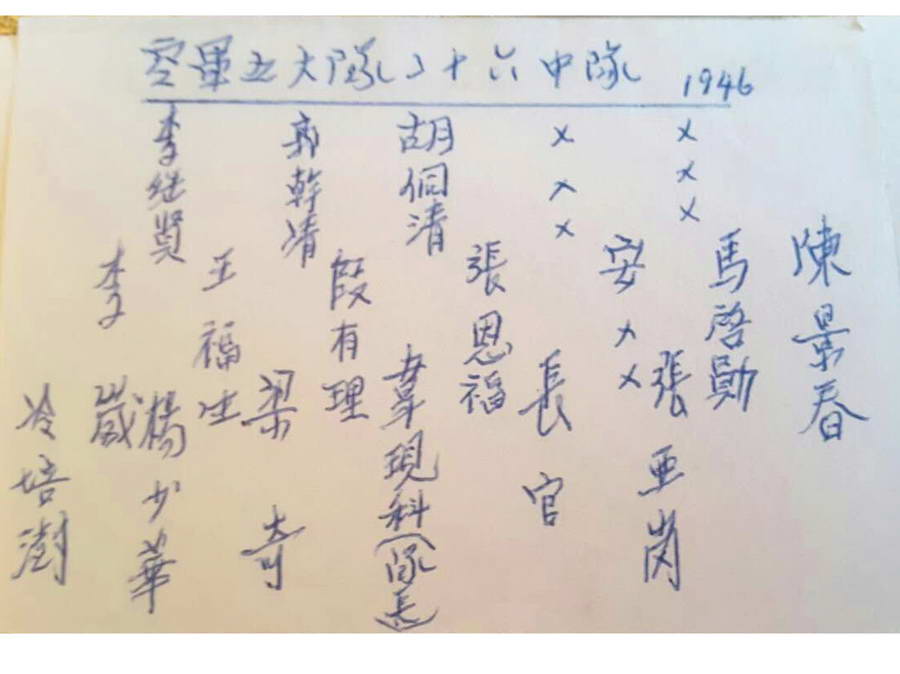 空軍五大隊二十六中隊 1946
李继賢
郭幹清
胡侗清
×××
×××
李崴
王福生
段有理
張恩福
安××
馬啓勛
陳景春
冷培澍
楊少華
梁奇
韋現科(隊長)
長官
張亜岗